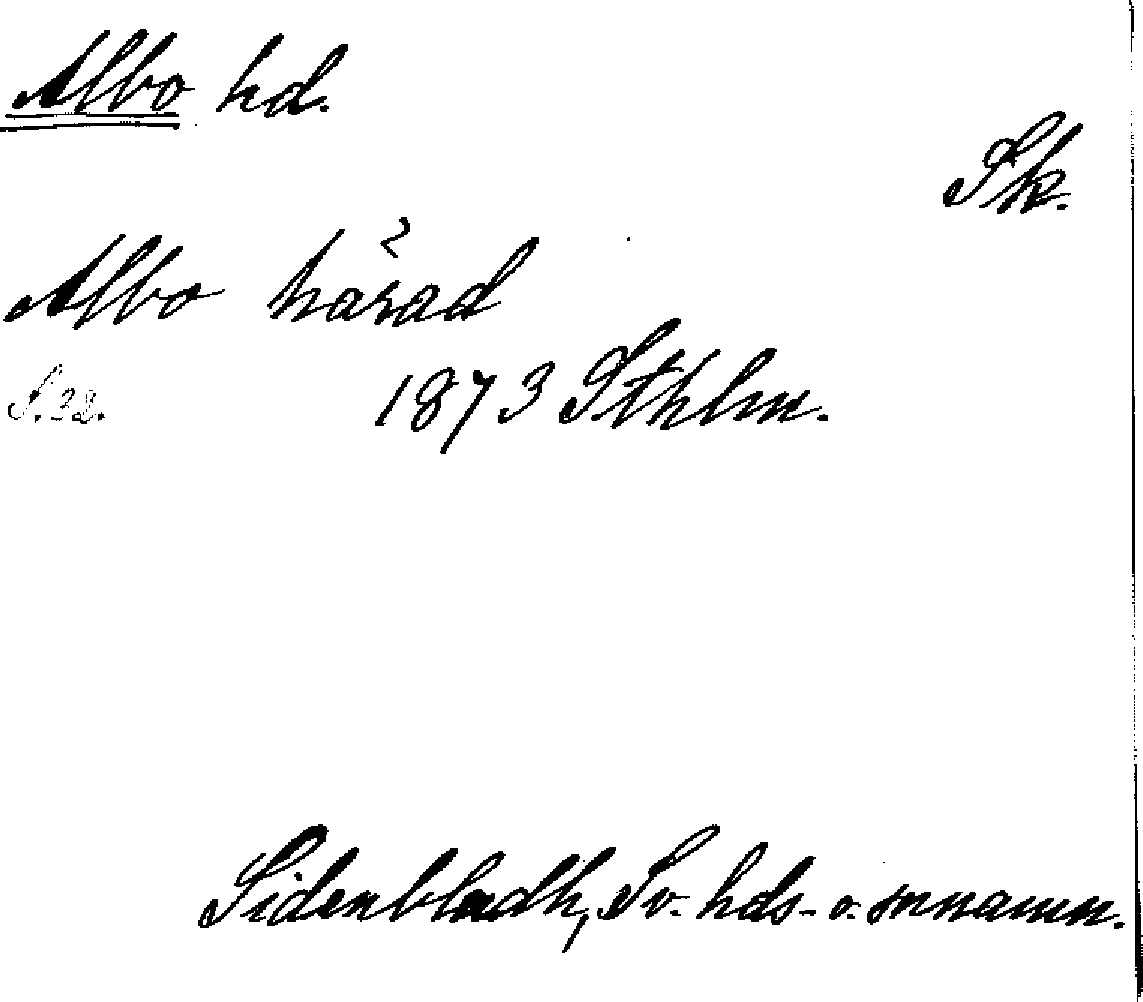 Albo hd.
Sk.
Albo härad
S. 22. 1873 Sthlm.
Sidenbladh, Sv. hds- o. snnamn.